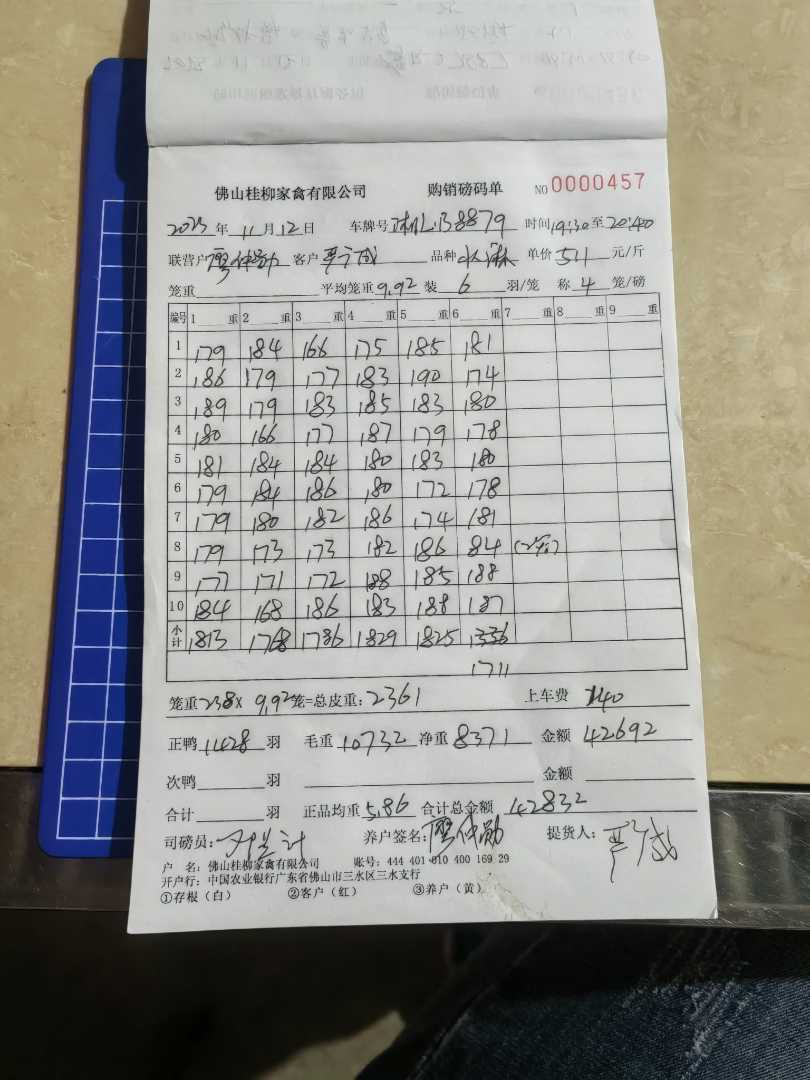 佛山桂柳家禽有限公司 购销磅码单 NO 0000457
2023 年 11 月 12 日 车牌号 B8879 时间 19:30 至 20:40
联营户 廖仲勋 客户 严成 品种 水 单价 511 元/斤
笼重 平均笼重 9.92 装 6 羽/笼 称 4 笼/磅
编号 1 重 2 重 3 重 4 重 5 重 6 重 7 重 8 重 9 重
1 179 184 166 175 185 181
2 186 179 177 183 190 174
3 189 179 183 185 183 180
4 180 166 177 187 179 178
5 181 184 184 180 183 180
6 179 184 186 180 172 178
7 179 180 182 186 174 181
8 179 173 173 182 186 84
9 177 171 172 188 185 188
10 184 168 186 183 188 187
小计 1813 1768 1786 1829 1825
1711
笼重 238 X 9.92 笼=总皮重: 2361 上车费 140
正鸭 1428 羽 毛重 10732 净重 8371 金额 42692
次鸭 羽 金额
合计 羽 正品均重 5.86 合计总金额 42832
司磅员: 养户签名: 廖仲勋 提货人:
户 名: 佛山桂柳家禽有限公司 账号: 444 401 010 400 169 29
开户行: 中国农业银行广东省佛山市三水区三水支行
①存根（白） ②客户（红） ③养户（黄）